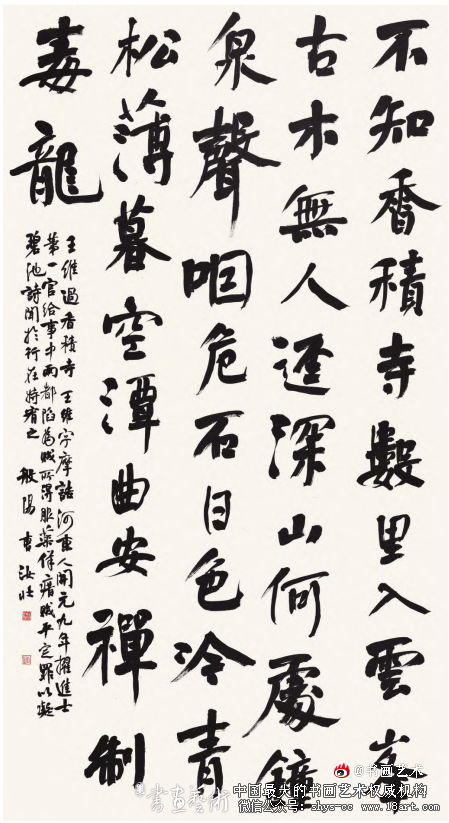 不知香積寺數里入雲峯
古木無人逕深山何處鐘
泉聲咽危石日色冷青
松薄暮空潭曲安禪制
毒龍
王維過香積寺 王維字摩詰河東人開元九年擢進士
第一官給事中兩都陷為賊所得服藥佯瘖賊平定罪以凝
碧池詩聞於行在特宥之 般陽 曹汝
@书画艺术
書畫藝術
中国最大的书画艺术权威机构
微信公众号: shys-cc www.18art.com